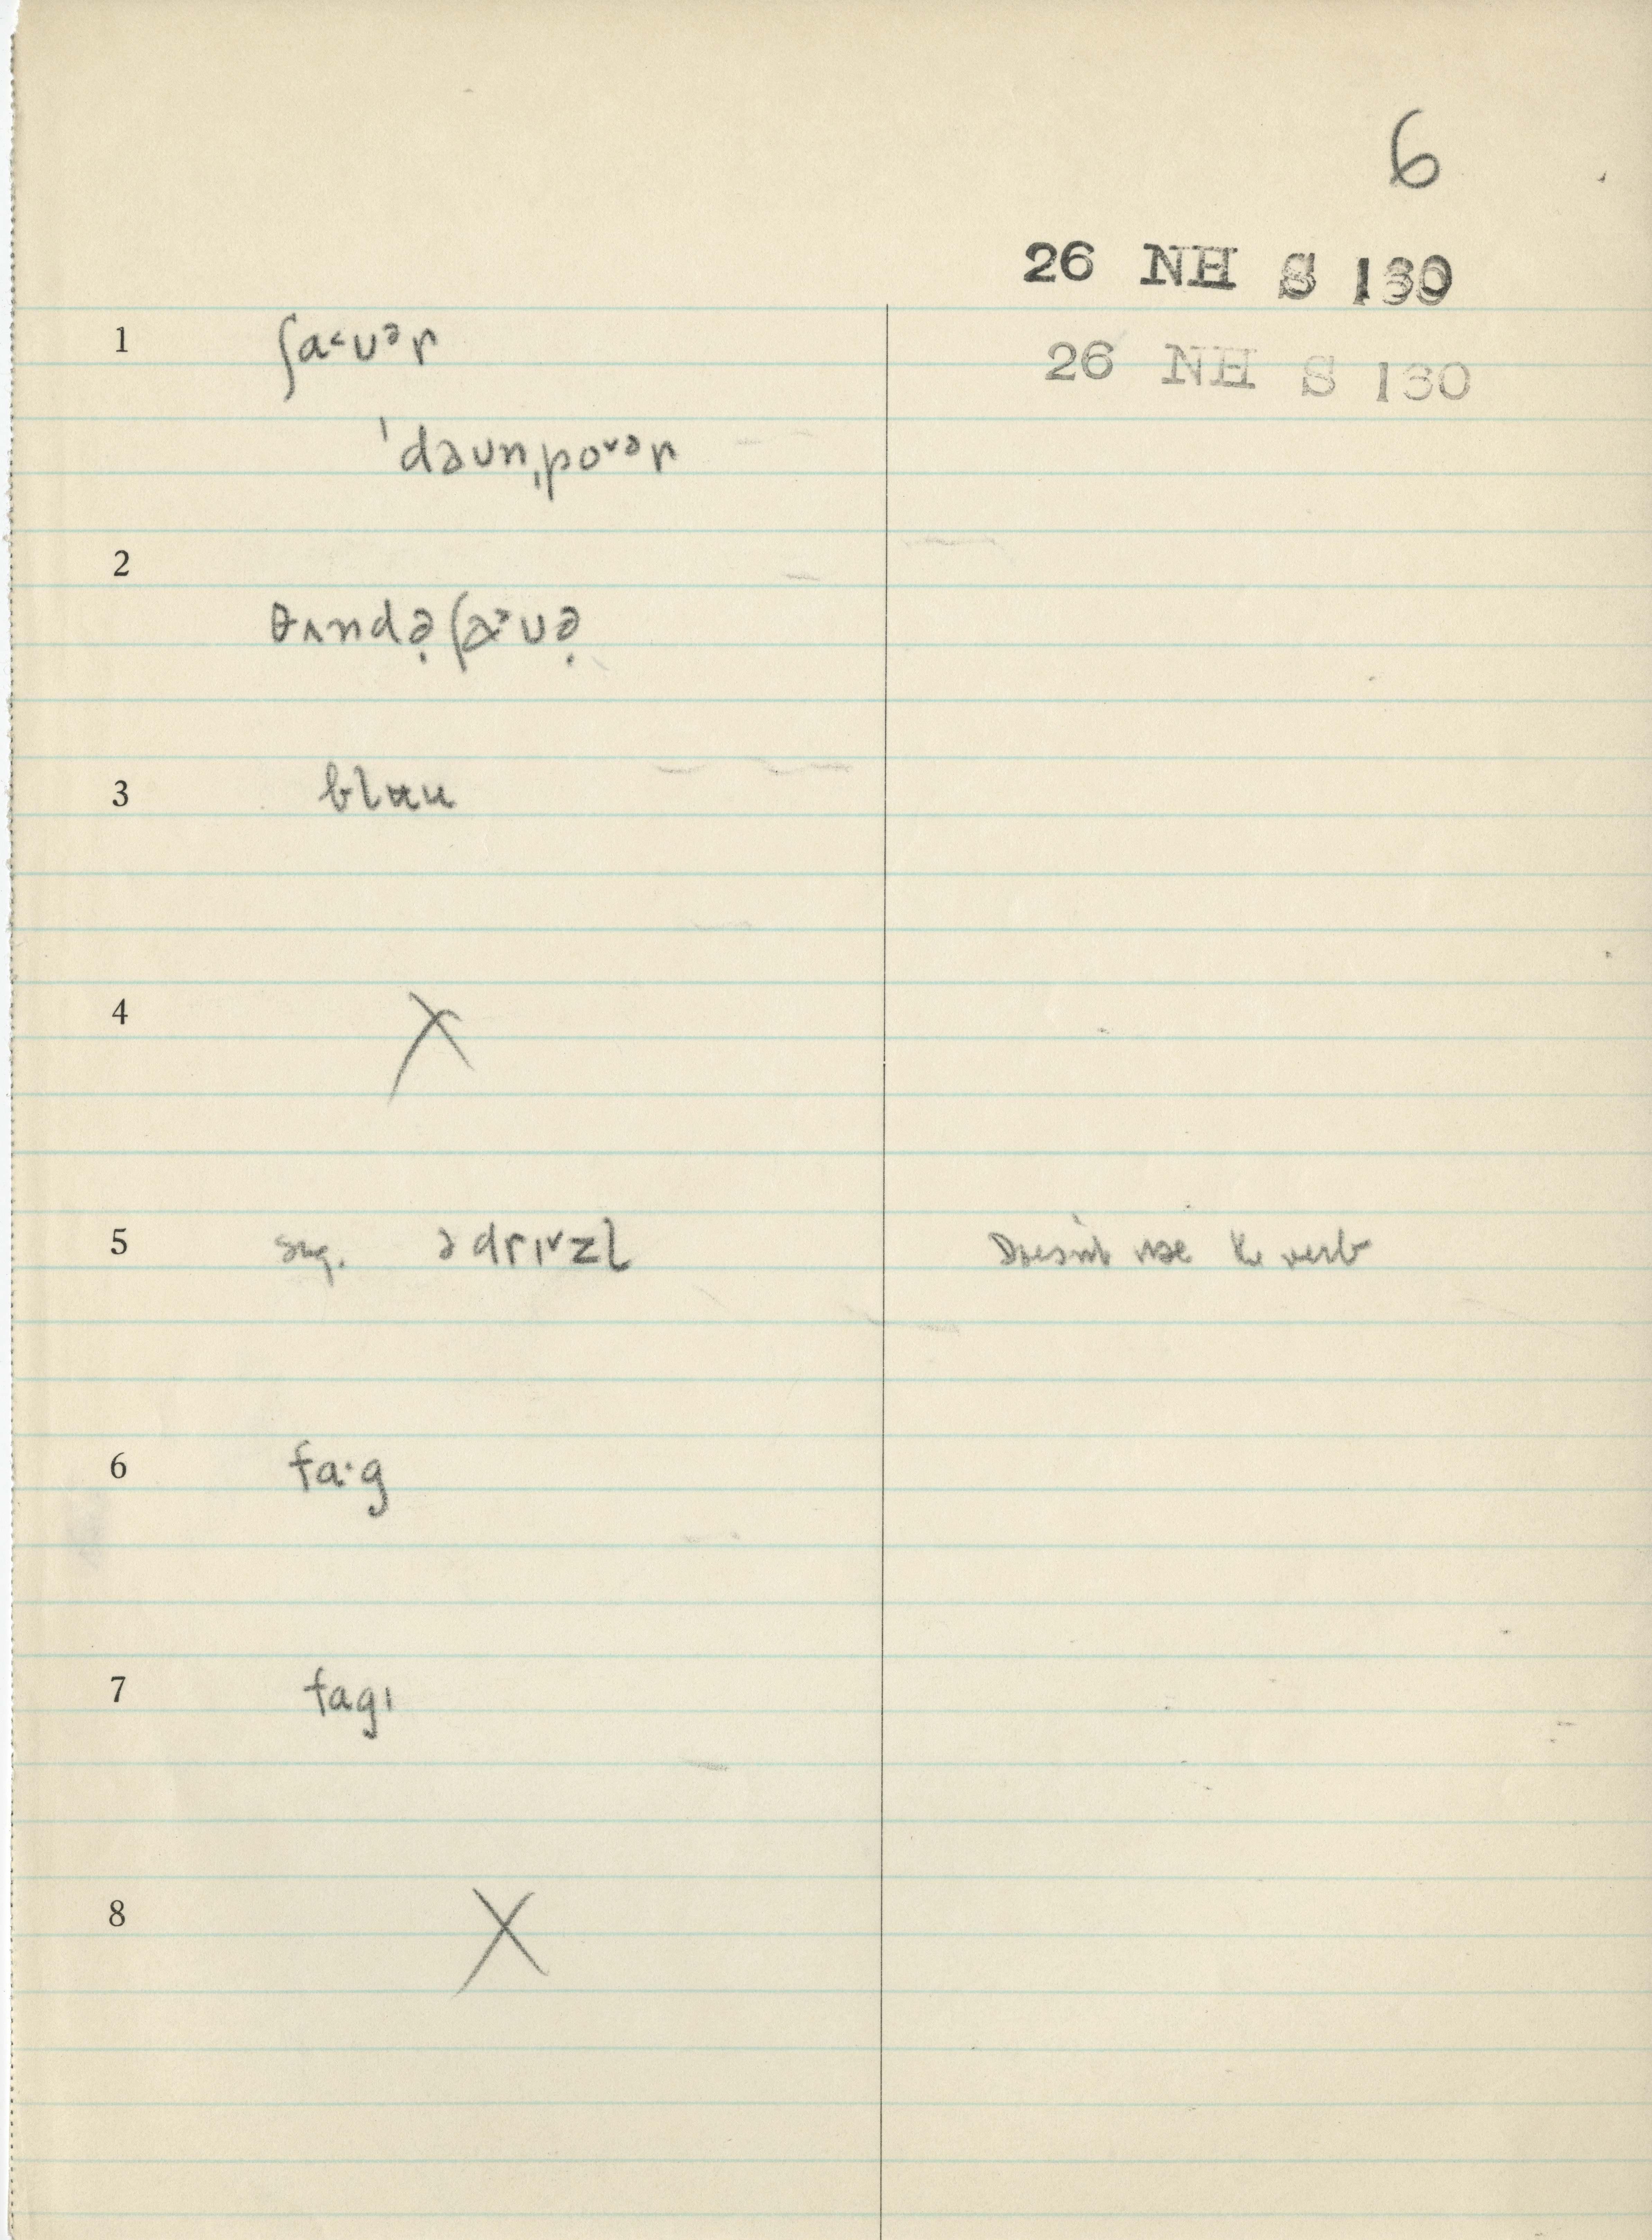 6
26 NH S 130
26 NH S 130
1 ʃa˂ʊᵊr
ˈdəʊnˌpoˇᵊr
2
θʌndə̣ʃa˃ʊə̣
3
4 X
5 sug. ə drɪˇzl Doesn't use the verb
6 fa·g
7 fagɪ
8 X